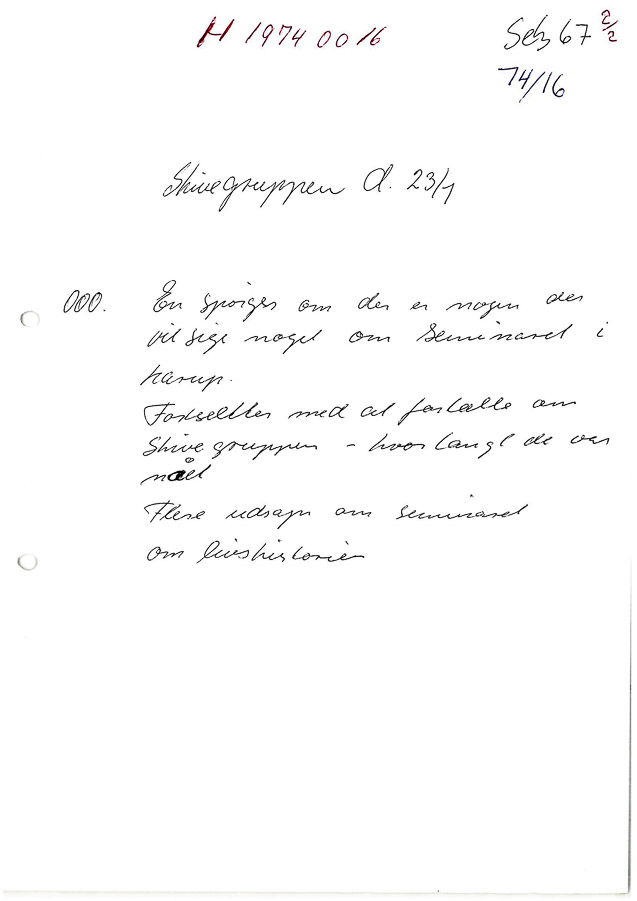 H 1974 00 16
Seh 67 2/2
74/16
Skivegruppen d. 23/1
000. En spørges om der er nogen der
vil sige noget om Seminaret i
Karup.
Fortsættes med at fortælle om
Skivegruppen - hvor langt de var
nået
Flere udsagn om seminaret
om livshistorier